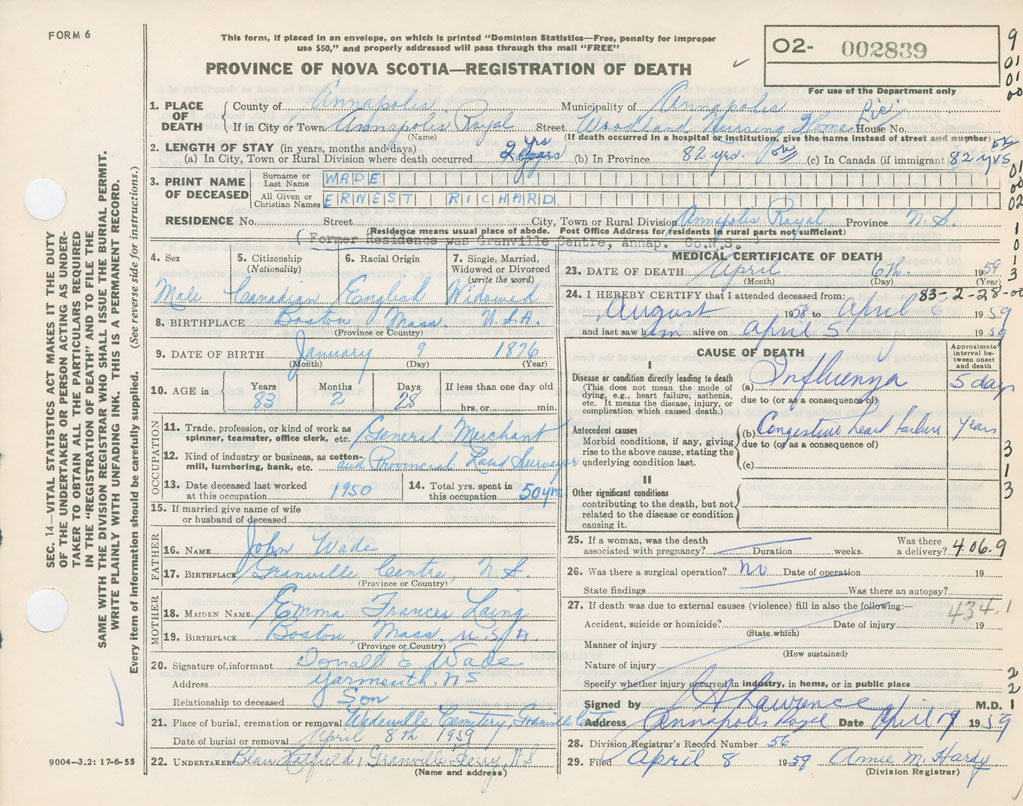 FORM 6
This form, if placed in an envelope, on which is printed "Dominion Statistics—Free, penalty for improper
use $50," and properly addressed will pass through the mail "FREE"
PROVINCE OF NOVA SCOTIA—REGISTRATION OF DEATH
02- 002839
For use of the Department only
9
01
01
00
SEC. 14—VITAL STATISTICS ACT MAKES IT THE DUTY
OF THE UNDERTAKER OR PERSON ACTING AS UNDER-
TAKER TO OBTAIN ALL THE PARTICULARS REQUIRED
IN THE "REGISTRATION OF DEATH" AND TO FILE THE
SAME WITH THE DIVISION REGISTRAR WHO SHALL ISSUE THE BURIAL PERMIT.
WRITE PLAINLY WITH UNFADING INK. THIS IS A PERMANENT RECORD.
Every item of information should be carefully supplied. (See reverse side for instructions.)
1. PLACE OF DEATH County of Annapolis Municipality of Annapolis
If in City or Town Annapolis Royal Street Woodland Nursing Home House No.
(Name) (If death occurred in a hospital or institution, give the name instead of street and number)
2. LENGTH OF STAY (in years, months and days)
(a) In City, Town or Rural Division where death occurred 2 yrs (b) In Province 82 yrs. (c) In Canada (if immigrant) 82 yrs
3. PRINT NAME OF DECEASED Surname or Last Name WADE
All Given or Christian Names ERNEST RICHARD
RESIDENCE No. Street City, Town or Rural Division Annapolis Royal Province N.S.
(Residence means usual place of abode. Post Office Address for residents in rural parts not sufficient)
( Former Residence was Granville Centre, Annap. Co.N.S.
4. Sex 5. Citizenship (Nationality) 6. Racial Origin 7. Single, Married, Widowed or Divorced (write the word)
Male Canadian English Widowed
8. BIRTHPLACE Boston Mass. U.S.A.
(Province or Country)
9. DATE OF BIRTH January 9 1876
(Month) (Day) (Year)
10. AGE in Years 83 Months 2 Days 28 If less than one day old hrs. or min.
OCCUPATION
11. Trade, profession, or kind of work as spinner, teamster, office clerk, etc. General Merchant
12. Kind of industry or business, as cotton-mill, lumbering, bank, etc. and Provincial Land Surveyor
13. Date deceased last worked at this occupation 1950 14. Total yrs. spent in this occupation 50 yrs
15. If married give name of wife or husband of deceased
FATHER
16. NAME John Wade
17. BIRTHPLACE Granville Centre, N.S.
(Province or Country)
MOTHER
18. MAIDEN NAME Emma Frances Laing
19. BIRTHPLACE Boston, Mass. U.S.A.
(Province or Country)
20. Signature of informant Donald E Wade
Address Yarmouth, NS
Relationship to deceased Son
21. Place of burial, cremation or removal Wadeville Cemetery, Granville
Date of burial or removal April 8th 1959
22. UNDERTAKER Granville Ferry, N.S.
(Name and address)
9004—3.2: 17-6-55
MEDICAL CERTIFICATE OF DEATH
23. DATE OF DEATH April 6th 1959
(Month) (Day) (Year)
83-2-28-00
24. I HEREBY CERTIFY that I attended deceased from:
August 1958 to April 6 1959
and last saw him alive on April 5 1959
CAUSE OF DEATH
Approximate interval between onset and death
I
Disease or condition directly leading to death (a) Influenza 5 days
(This does not mean the mode of dying, e.g., heart failure, asthenia, etc. It means the disease, injury, or complication which caused death.)
due to (or as a consequence of)
Antecedent causes (b) Congestive heart failure years
Morbid conditions, if any, giving rise to the above cause, stating the underlying condition last.
due to (or as a consequence of)
(c)
II
Other significant conditions
contributing to the death, but not related to the disease or condition causing it.
3
1
3
25. If a woman, was the death associated with pregnancy? Duration weeks. Was there a delivery? 406.9
26. Was there a surgical operation? No Date of operation 19
State findings Was there an autopsy?
27. If death was due to external causes (violence) fill in also the following:— 434.1
Accident, suicide or homicide? Date of injury 19
(State which)
Manner of injury
(How sustained)
Nature of injury
Specify whether injury occurred in industry, in home, or in public place
Signed by Lawrence M.D.
Address Annapolis Royal Date April 1959
28. Division Registrar's Record Number 56
29. Filed April 8 1959 Annie M. Hardy
(Division Registrar)